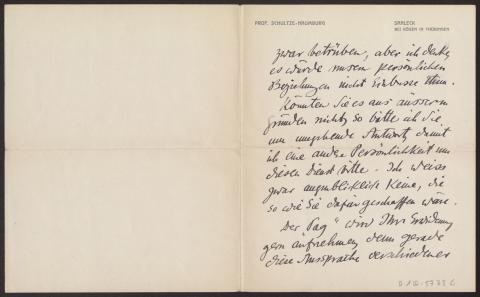 PROF. SCHULTZE-NAUMBURG
SAALECK
BEI KÖSEN IN THÜRINGEN
zwar betrüben, aber ich denke,
es würde unsern persönlichen
Beziehungen nicht Einbusse thun.
Könnten Sie es aus äussern
gründen nicht, so bitte ich Sie
um umgehende Antwort, damit
ich eine andere Persönlichkeit um
diesen Dienst bitte. Ich weiss
zwar augenblicklich keine, die
so wie Sie dafür geschaffen wäre.
Der Tag" wird Ihre Erwiderung
gern aufnehmen, denn gerade
diese Aussprache verschiedener